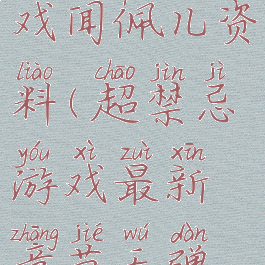 戏闻佩儿资
liào chāo jìn jì
料(超禁忌
yóu xì zuì xīn
游戏最新
zhāng jié wú dàn
章节无弹